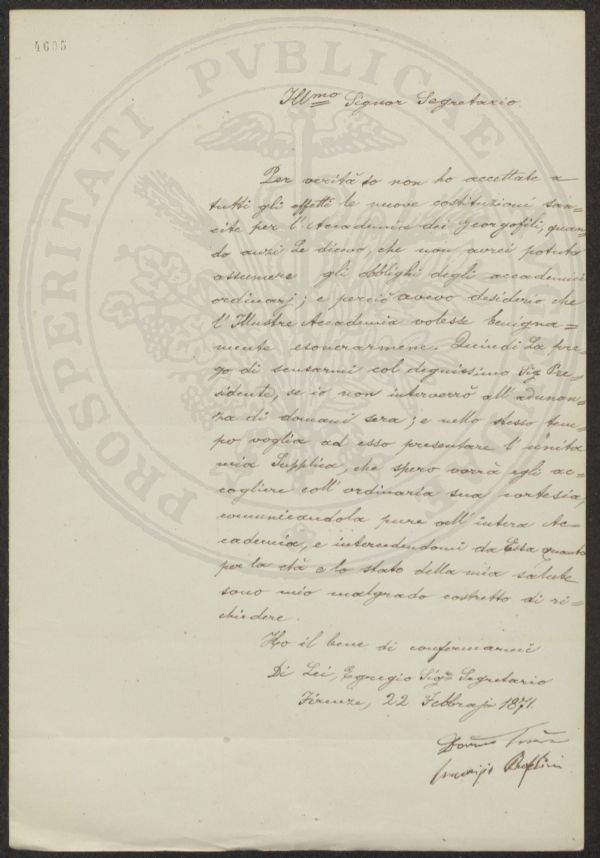 4605
PROSPERITATI PVBLICAE
Ill.mo Signor Segretario.
Per verità io non ho accettate a
tutti gli effetti le nuove costituzioni san=
cite per l'Accademia dei Georgofili, quan
do anzi Le dicevo, che non avrei potuto
assumere gli obblighi degli accademici
ordinarj; e perciò avevo desiderio che
l'Illustre Accademia volesse benigna=
mente esonerarmene. Quindi La pre=
go di scusarmi col degnissimo Sig Pre=
sidente, se io non interverrò all'adunan=
za di domani sera; e nello stesso tem=
po voglia ad esso presentare l'unita
mia Supplica, che spero vorrà egli ac=
cogliere coll'ordinaria sua cortesia,
comunicandola pure all'intera Ac=
cademia, e intercedendomi da Essa quanto
per la età e lo stato della mia salute
sono mio malgrado costretto di ri=
chiedere.
Ho il bene di confermarmi
Di Lei, Egregio Sig.r Segretario
Firenze, 22 Febbrajo 1871.